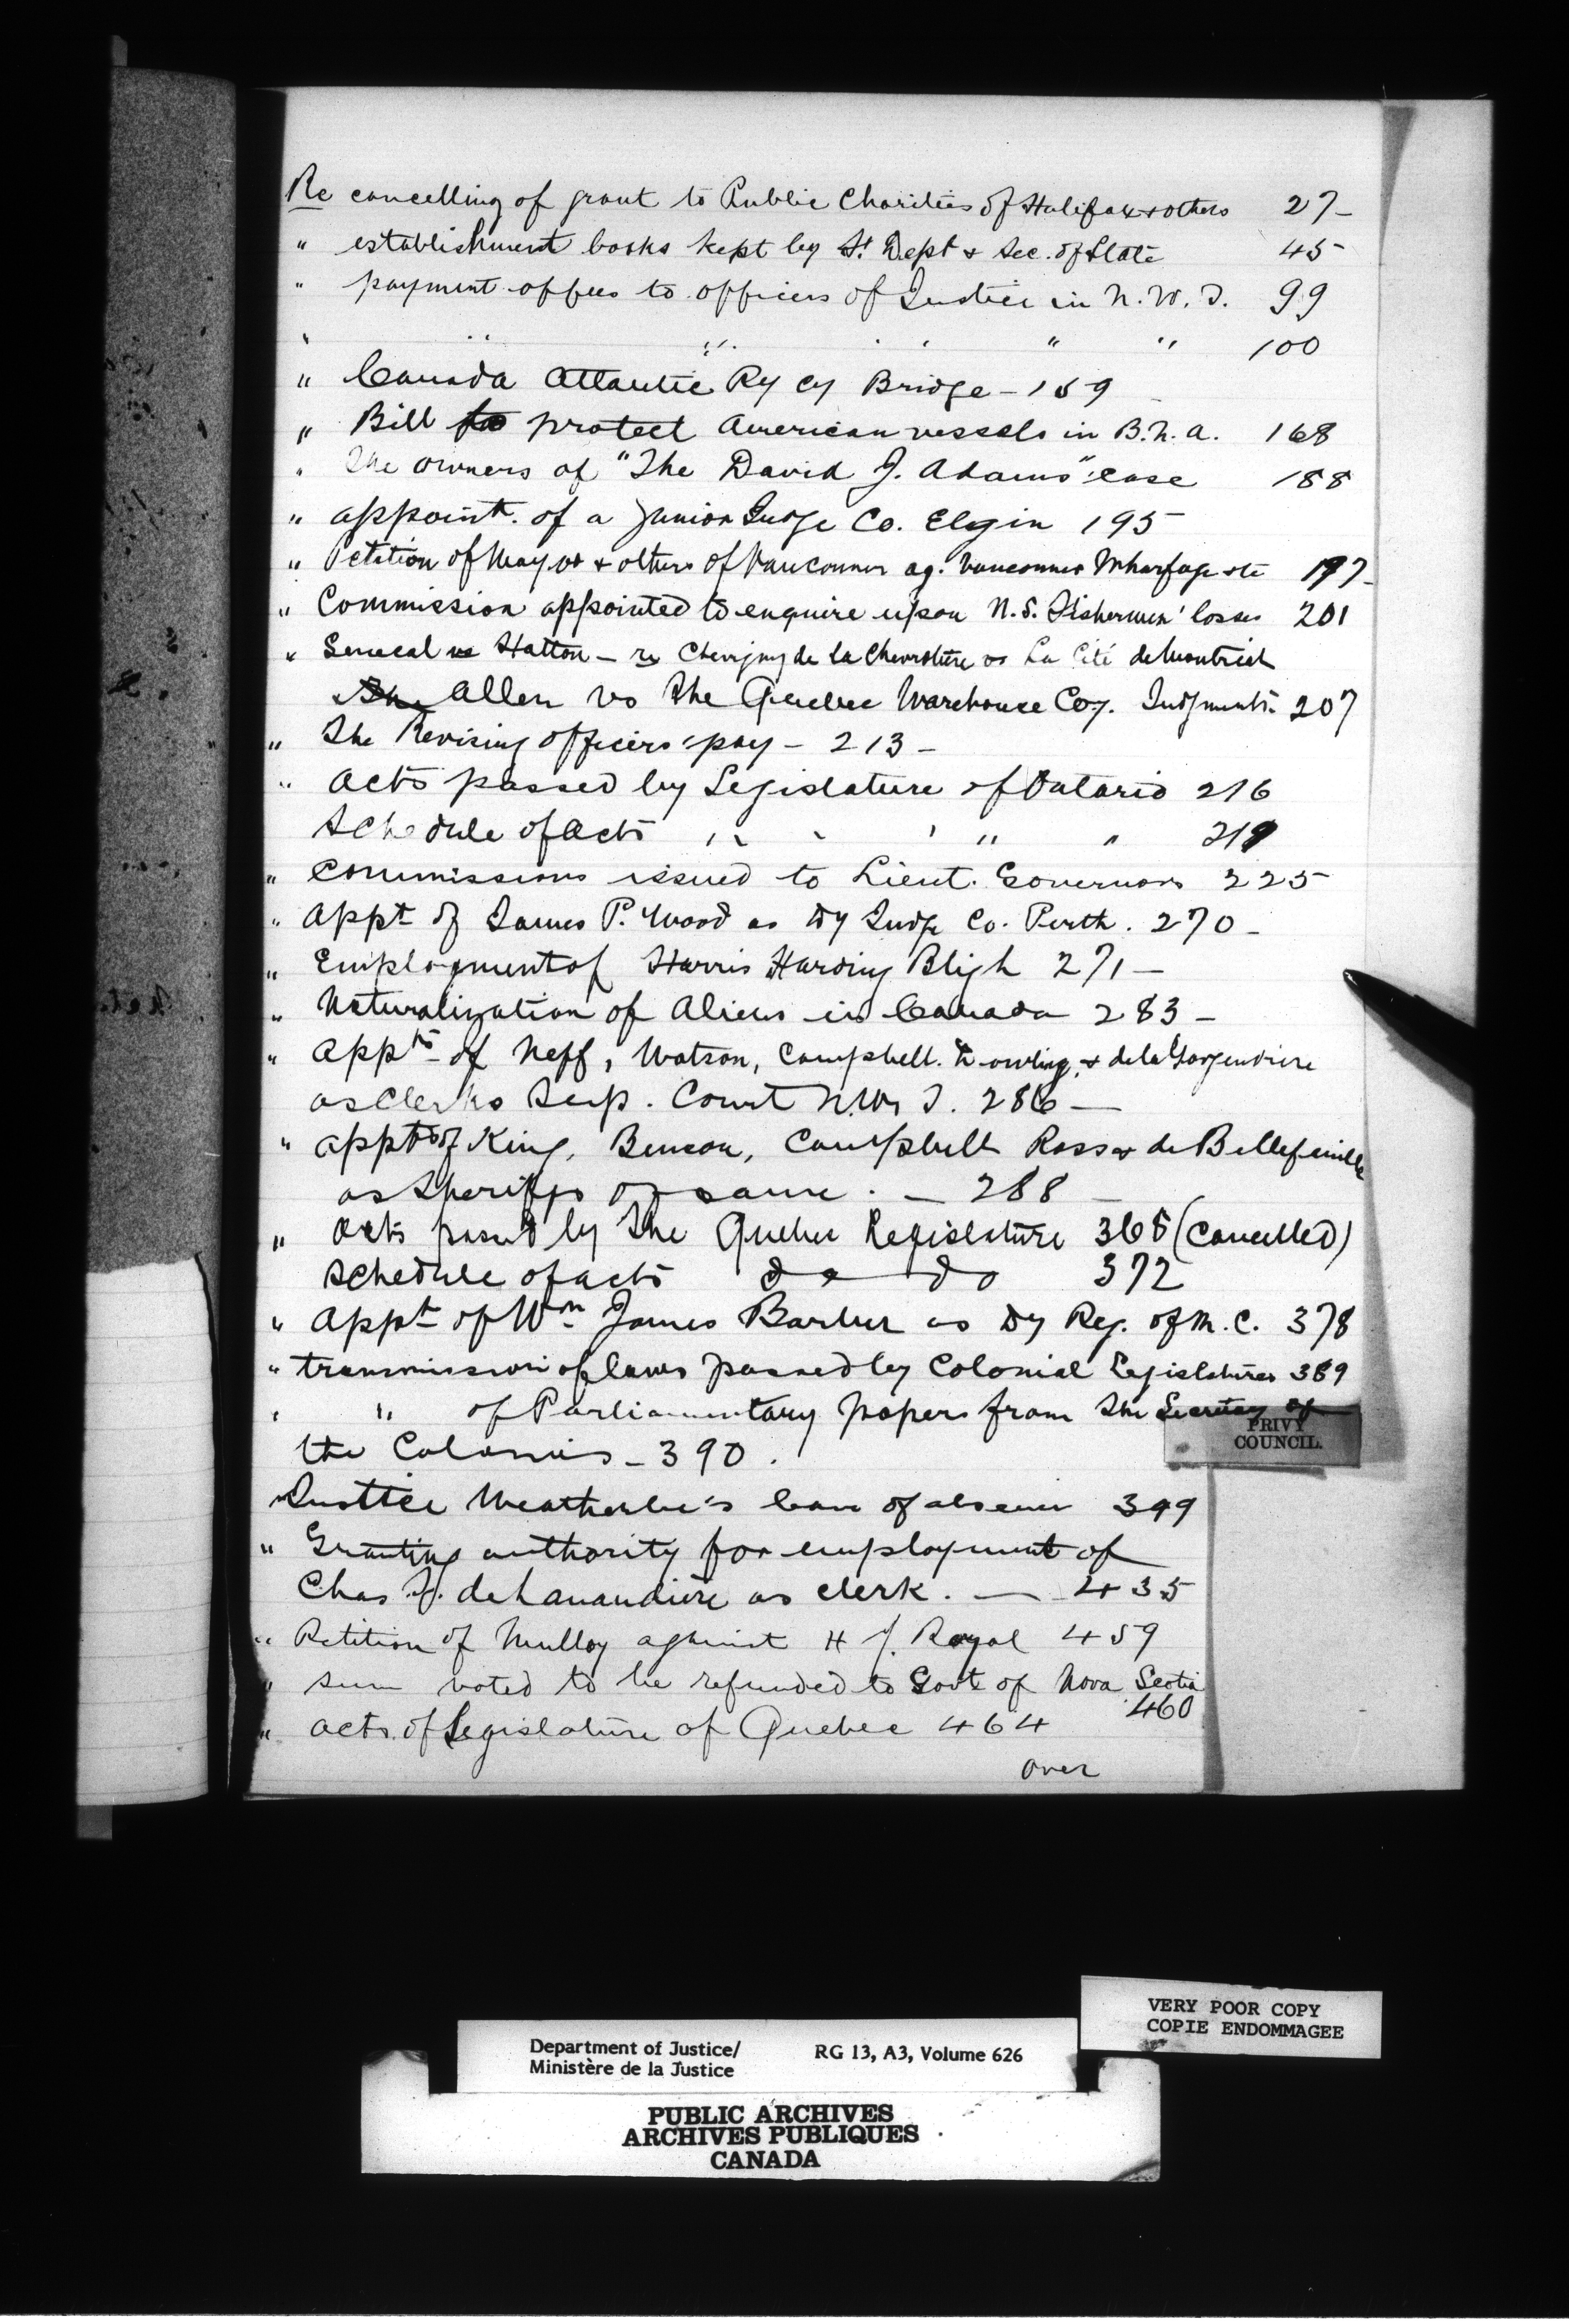 Re cancelling of grant to Public Charities of Halifax & others 27-
" establishment books kept by Jt Dept & Sec. of State 45
" payment of fees to officers of Justice in N. W. T. 99
" " " " " " " 100
" Canada Atlantic Ry Cy Bridge - 159
" Bill to protect American vessels in B. N. A. 168
" The owners of "The David J. Adams" case 188
" appoint. of a Junior Judge Co. Elgin 195
" Petition of Mayor & others of Vancouver ag. Vancouver Wharfage &c 197-
" Commission appointed to enquire upon N. S. Fishermen' losses 201
" Senecal vs Hatton - re Chevigny de la Chevrotière vs La Cité de Montreal
The Allen vs The Quebec Warehouse Coy. Judgments. 207
" The Revising officers' pay - 213 -
" Acts passed by Legislature of Ontario 216
Schedule of Acts " " " " " 219
" Commissions issued to Lieut. Governors 225
" Appt of James P. Wood as Dy Judge Co. Perth. 270 -
" Employment of Harris Harding Bligh 271 -
" Naturalization of Aliens in Canada 283 -
" Appts of Neff, Watson, Campbell. Dowling, & de la Gorgendiere
as Clerks Sup. Court N. W. T. 286 -
" appts of King, Benson, Campbell Ross & de Bellefeuille
as Sheriffs of same. - 288 -
" Acts passed by the Quebec Legislature 365 (Cancelled)
Schedule of acts do do 372
" Appt of Wm James Barber as Dy Reg. of M. C. 378
" transmission of laws passed by Colonial Legislatures 389
" " of Parliamentary papers from the Secretary of
the Colonies - 390.
" Justice Weatherbe's leave of absence 399
" Granting authority for employment of
Chas. de Lanaudière as clerk. - 435
" Petition of Mulloy against H J. Royal 459
" sum voted to be refunded to Govt of Nova Scotia
460
" acts of Legislature of Quebec 464
over
PRIVY
COUNCIL.
VERY POOR COPY
COPIE ENDOMMAGEE
Department of Justice/ RG 13, A3, Volume 626
Ministère de la Justice
PUBLIC ARCHIVES
ARCHIVES PUBLIQUES
CANADA